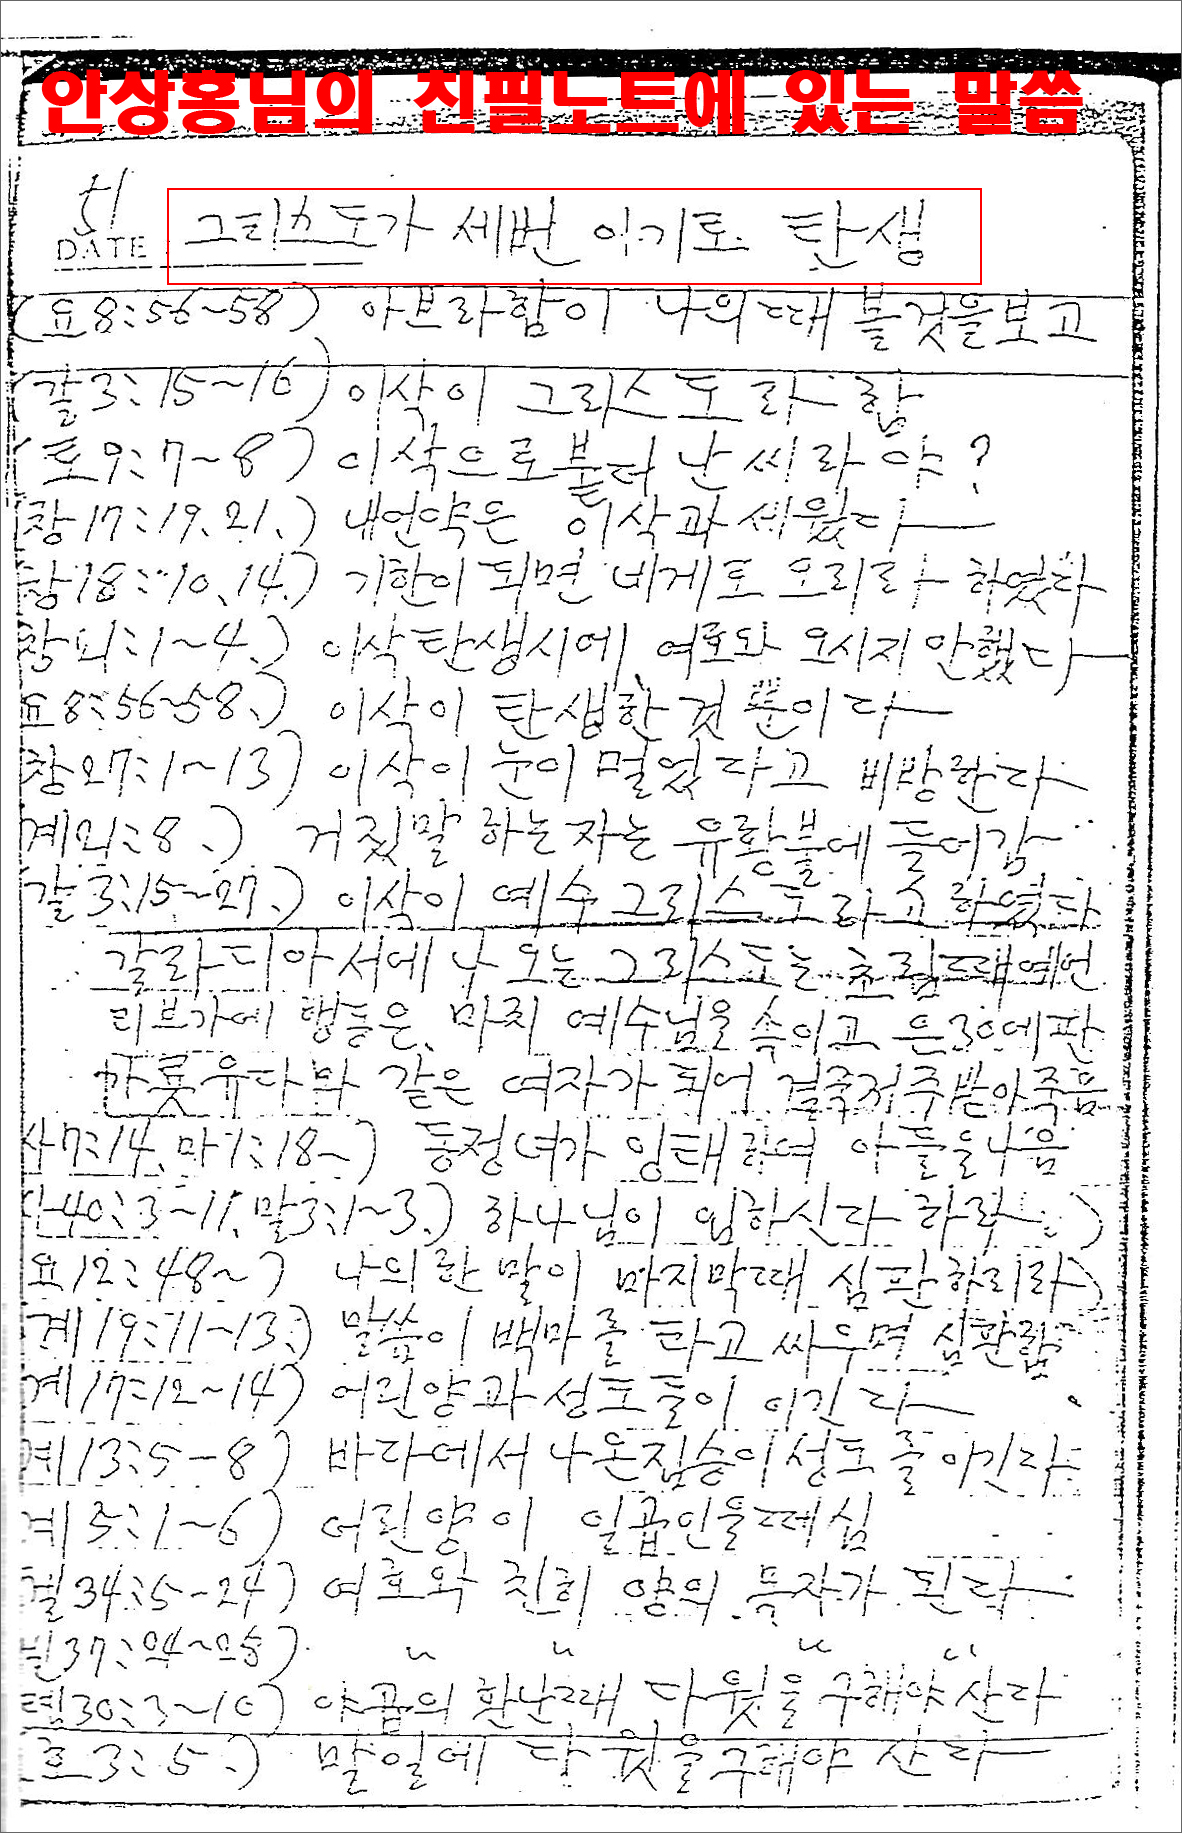 안상홍님의 친필노트에 있는 말씀
51
DATE 그리스도가 세번 아기로 탄생
(요8:56~58) 아브라함이 나의때 볼것을보고
(갈3:15~16) 이삭이 그리스도라 함
(로9:7~8) 이삭으로붙터 난 씨라야?
창17:19, 21,) 내언약은 이삭과 세웠다
창18:10, 14.) 기한이 되면 네게로 오리라 하였다
창21:1~4.) 이삭탄생시에 여호와 오시지 안했다
요8:56~58.) 이삭이 탄생한것 뿐이다
창27:1~13) 이삭이 눈이 멀었다고 비방한다
계21:8.) 거짓말 하는자는 유황불에 들어감
갈3:15~27.) 이삭이 예수 그리스도라고 하였다
갈라디아서에 나오는 그리스도는 초림때예언
리브가에 행동은 마치 예수님을 속이고 은30에판
가룟유다와 같은 여자가 되어 결국저주받아죽음
사7:14, 마1:18~) 동정녀가 잉태하여 아들을나음
사40:3~11, 말3:1~3.) 하나님이 임하신다 하라
요12:48~) 나의한 말이 마지막때 심판하리라
계19:11~13.) 말씀이 백마를 타고 싸우며 심판함
계17:12~14) 어린양과 성도들이 이긴다
계13:5-8) 바다에서 나온짐승이 성도를 이긴다
계5:1~6) 어린양이 일곱인을떼심
겔34:5-24) 여호와 친히 양의 목자가 된다
겔37:24~28) 〃 〃 〃 〃
렘30:3~10) 야곱의 환난때 다윗을 구해야 산다
호3:5.) 말일에 다윗을구해야 산다